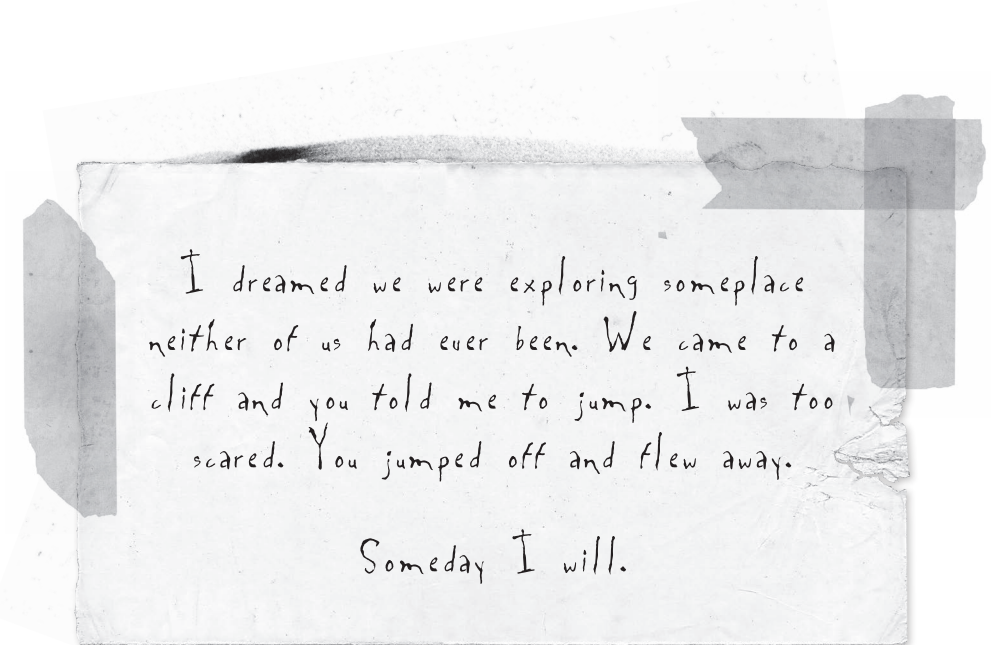 I dreamed we were exploring someplace
neither of us had ever been. We came to a
cliff and you told me to jump. I was too
scared. You jumped off and flew away.
Someday I will.